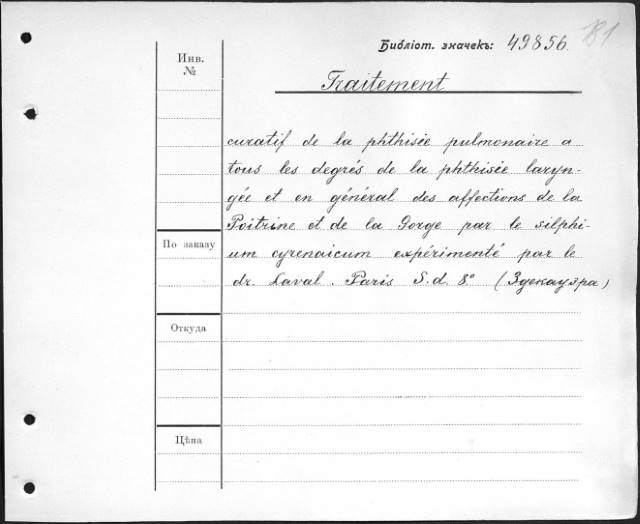 Библіот. значекъ: 49856. 181
Инв.
№
Traitement
curatif de la phthisie pulmonaire a
tous les degrés de la phthisie laryn-
gée et en général des affections de la
Poitrine et de la Gorge par le silphi-
По заказу
um cyrenaicum expérimenté par le
dr. Laval. Paris S.d. 8° (Здекауэра)
Откуда
Цѣна